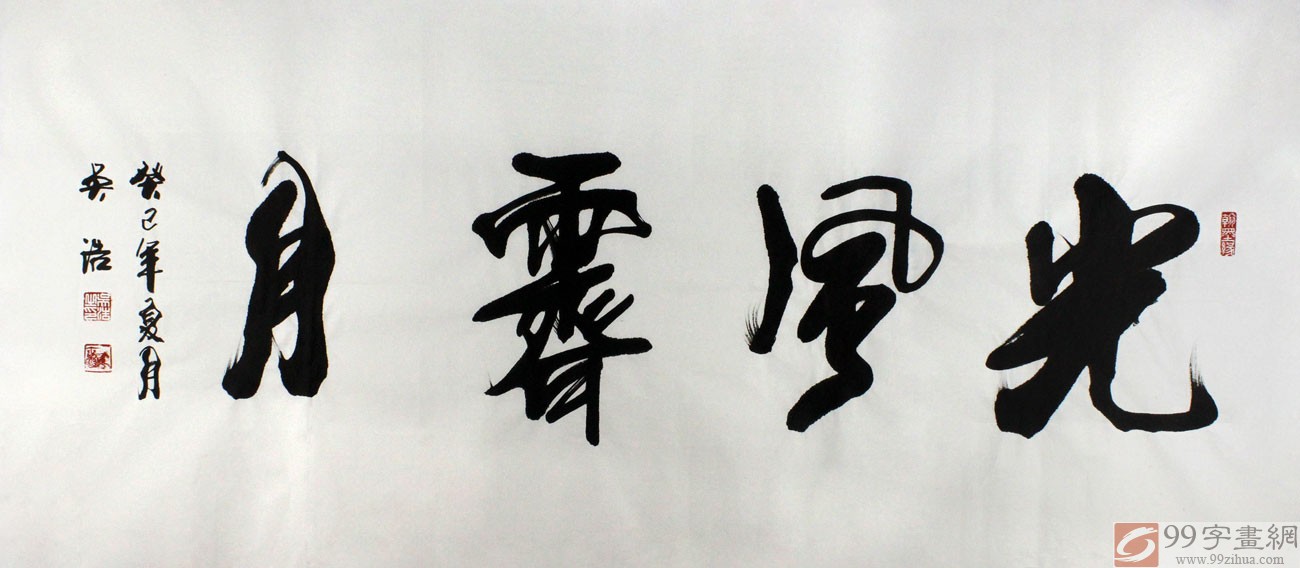 光風霽月
癸巳年夏月
吴浩
99字畫網
www.99zihua.com